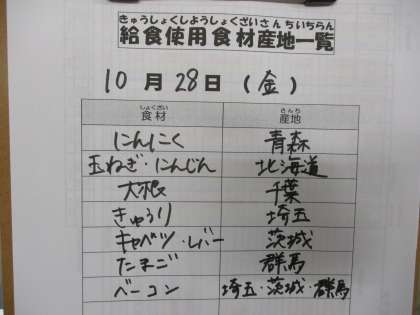 きゅうしょくしようしょくざいさんちいちらん
給食使用食材産地一覧
10月28日(金)
しょくざい さんち
食材 産地
にんにく 青森
玉ねぎ・にんじん 北海道
大根 千葉
きゅうり 埼玉
キャベツ・レバー 茨城
たまご 群馬
ベーコン 埼玉・茨城・群馬